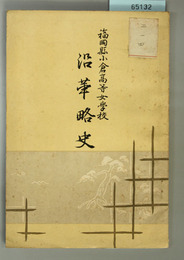 65132
福岡縣小倉高等女學校
沿革略史